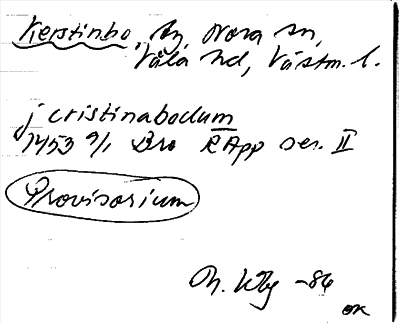 Kerstinbo, by, Nora sn,
Våla hd, Västm. l.
j cristinabodum
1453 9/1 Bro RApp ser. II
Provisorium
-86
OK